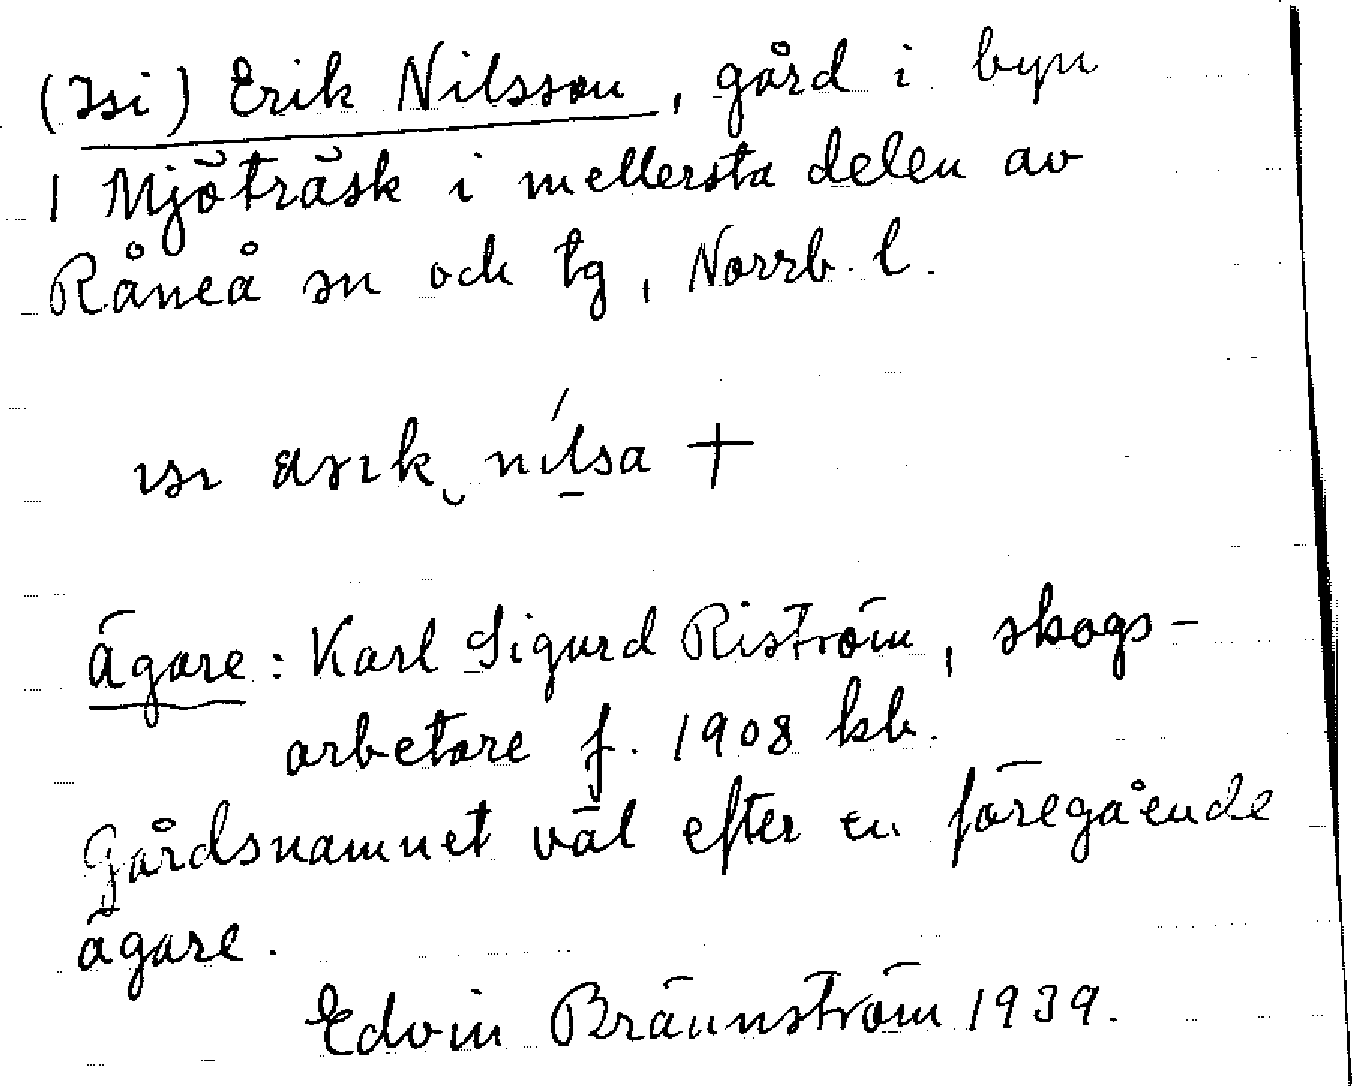 (Isi) Erik Nilsson, gård i byn
1 Mjöträsk i mellersta delen av
Råneå sn och tg, Norrb. l.
ısı ærık nílsa +
Ägare: Karl Sigurd Riström, skogs-
arbetare f. 1908 kb.
Gårdsnamnet väl efter en föregående
ägare.
Edvin Brännström 1939.